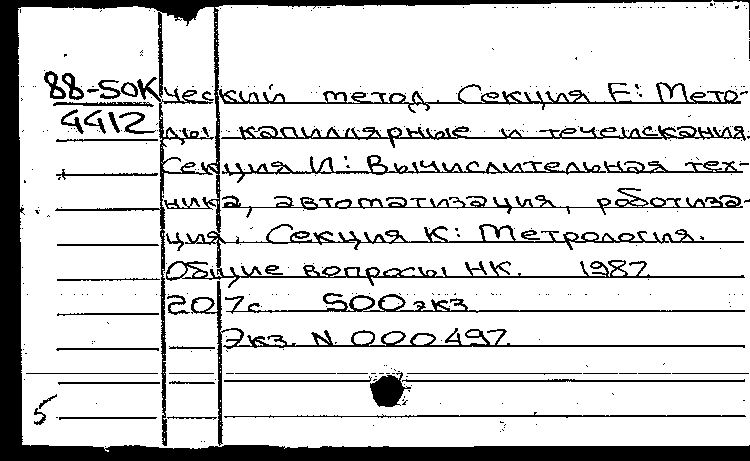 88-50K
4412
ческий метод. Секция Е: Мето-
ды капиллярные и течеискания.
Секция И: Вычислительная тех-
ника, автоматизация, роботиза-
ция. Секция К: Метрология.
Общие вопросы НК. 1987.
207с. 500 экз.
Экз. N 000497.
5